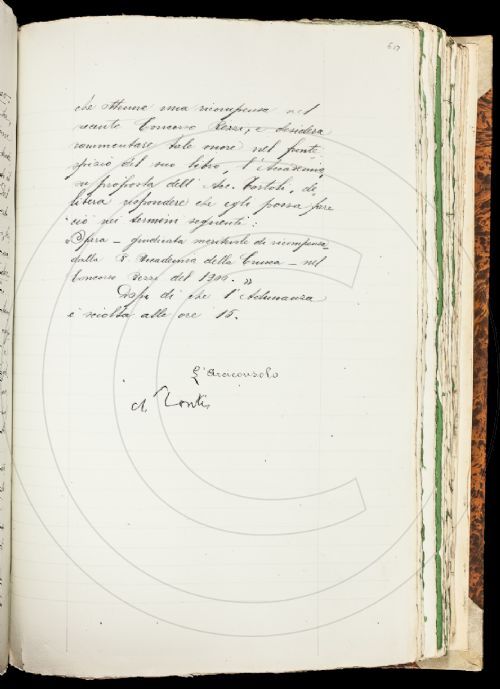 che ottenne una ricompensa nel
recente Concorso Rezzi, e desidera
rammentare tale onore nel fronte-
spizio del suo libro, l'Accademia,
su proposta dell'Arc. Tortoli, de-
libera rispondere che egli possa fare
ciò nei termini seguenti:
«Opera – giudicata meritevole di ricompensa
dalla R. Accademia della Crusca – nel
Concorso Rezzi del 1900.»
Dopo di che l'Adunanza
è sciolta alle ore 15.
L'Arciconsolo
A. Conti